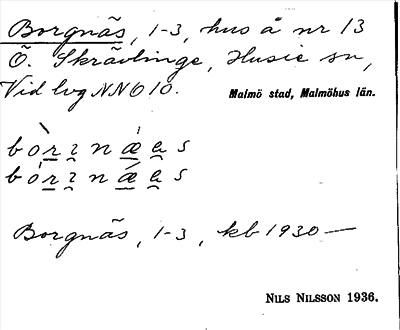 Borgnäs, 1-3, hus å nr 13
Ö. Skrävlinge, Husie sn,
Vid lvg NNO 10. Malmö stad, Malmöhus län.
Borgnäs, 1-3, kb 1930—
NILS NILSSON 1936.